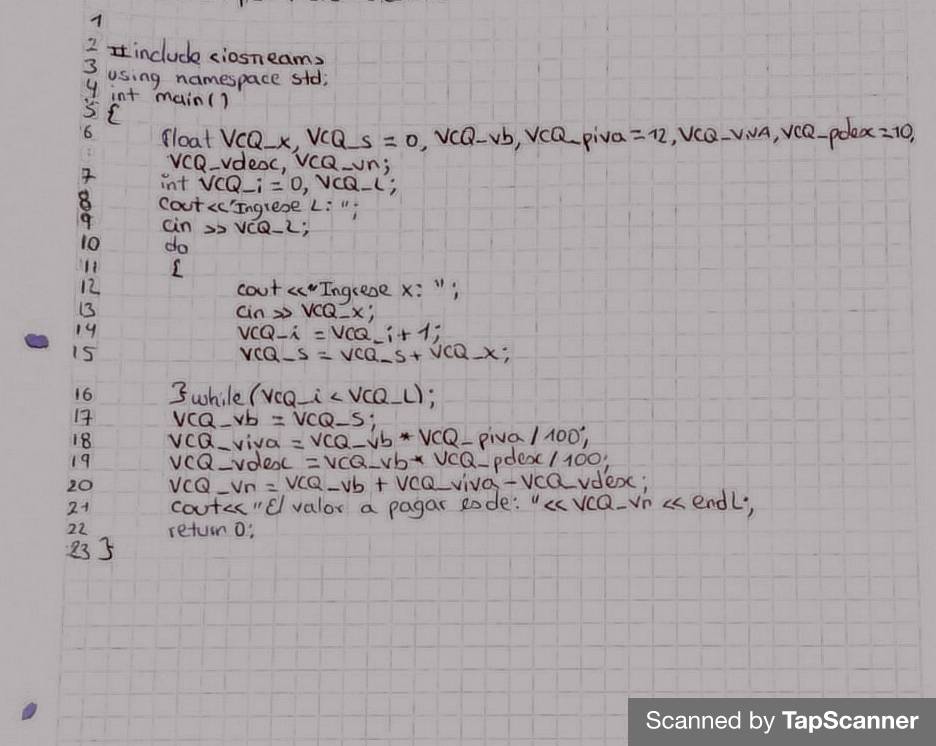 1
2 #include <iostream>
3 using namespace std;
4 int main()
5 {
6 float VCQ_x, VCQ_s = 0, VCQ_vb, VCQ_piva = 12, VCQ_VIVA, VCQ_pdesc = 10,
VCQ_vdesc, VCQ_vn;
7 int VCQ_i = 0, VCQ_L;
8 cout << "Ingrese L: ";
9 cin >> VCQ_L;
10 do
11 {
12 cout << "Ingrese x: ";
13 cin >> VCQ_x;
14 VCQ_i = VCQ_i + 1;
15 VCQ_s = VCQ_s + VCQ_x;
16 } while (VCQ_i < VCQ_L);
17 VCQ_vb = VCQ_s;
18 VCQ_viva = VCQ_vb * VCQ_piva / 100;
19 VCQ_vdesc = VCQ_vb * VCQ_pdesc / 100;
20 VCQ_vn = VCQ_vb + VCQ_viva - VCQ_vdesc;
21 cout << "El valor a pagar es de: " << VCQ_vn << endL;
22 return 0;
23 }
Scanned by TapScanner